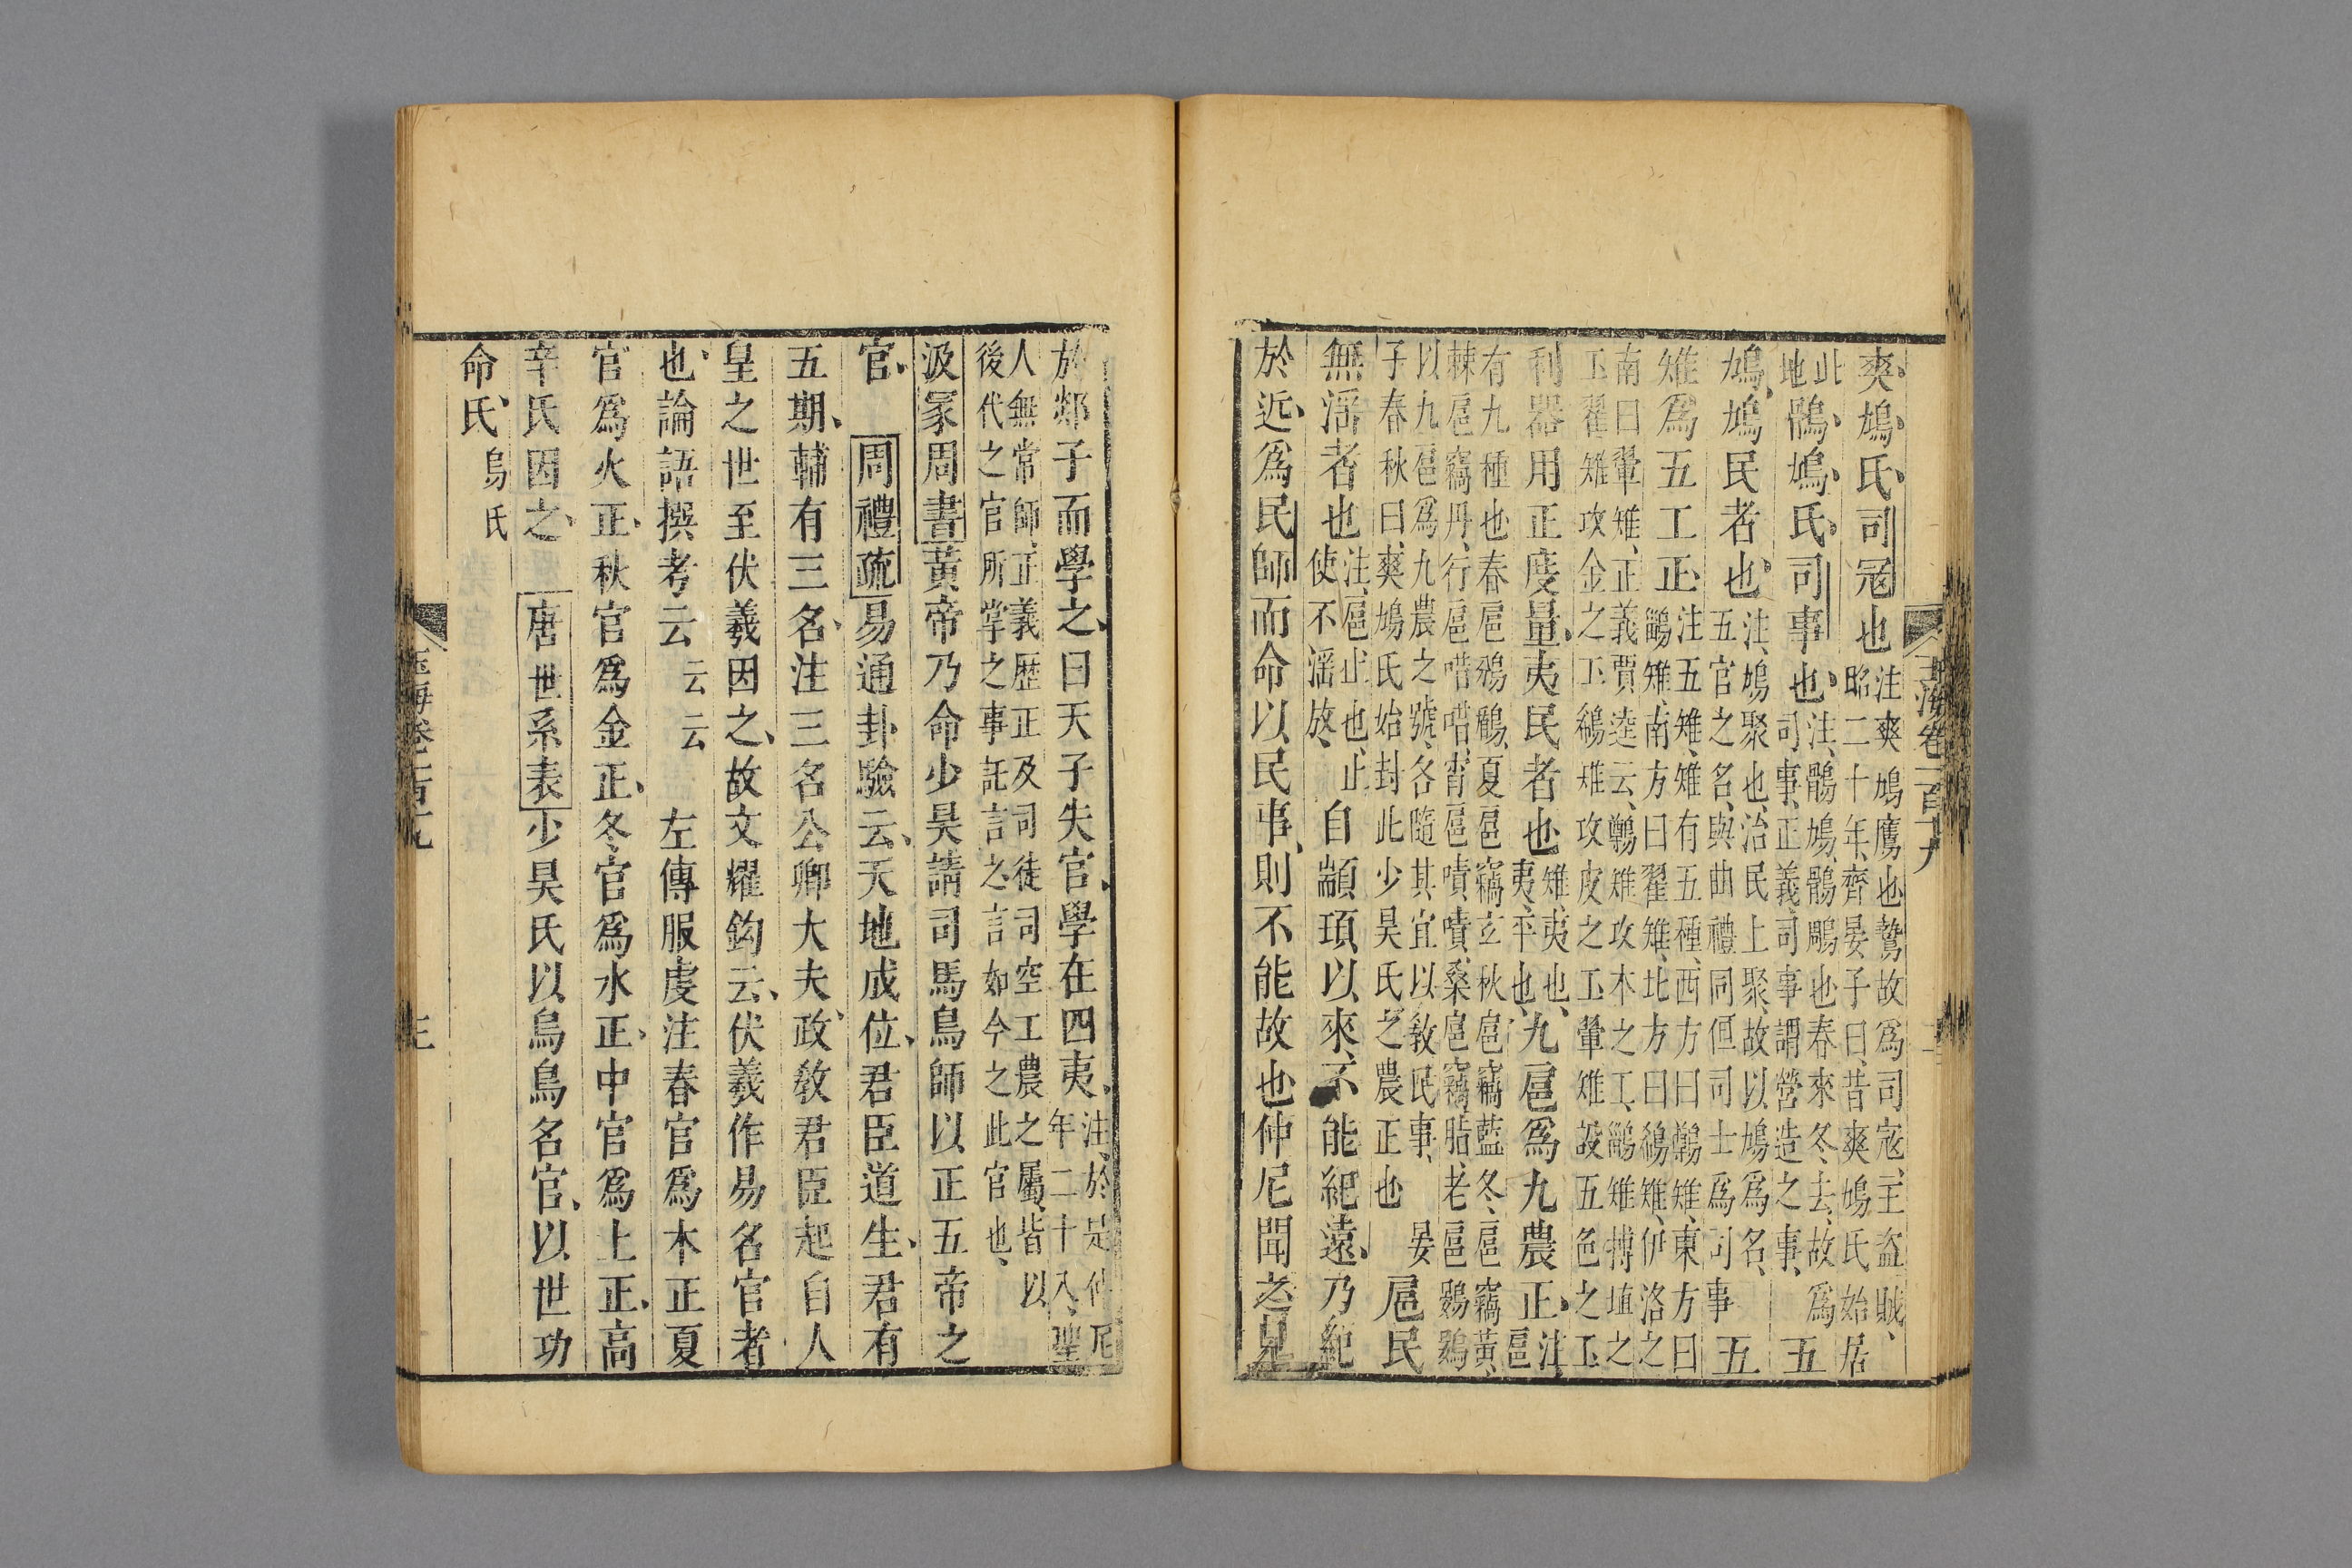 玉海卷一百十九
爽鳩氏司冦也注爽鳩鷹也鷙故爲司宼主盗賊
昭二十年齊晏子曰昔爽鳩氏始居
此地鶻鳩氏司事也注鶻鳩鶻鵰也春來冬去故爲
司事正義司事謂營造之事五
鳩鳩民者也注鳩聚也治民上聚故以鳩爲名
五官之名與曲禮同但司士爲司事五
雉爲五工正注五雉雉有五種西方曰鷷雉東方曰
鶅雉南方曰翟雉北方曰鵗雉伊洛之
南曰翬雉正義賈逵云鷷雉攻木之工鶅雉摶埴之
工翟雉攻金之工鵗雉攻皮之工翬雉設五色之工
利器用正度量夷民者也雉夷也夷平也九扈爲九農正注扈
有九種也春扈鳻鶞夏扈竊玄秋扈竊藍冬扈竊黃
棘扈竊丹行扈唶唶宵扈嘖嘖桑扈竊脂老扈鷃鷃
以九扈爲九農之號各隨其宜以敎民事晏
子春秋曰爽鳩氏始封此少昊氏之農正也扈民
無滛者也注扈止也止使不滛放自顓頊以來不能紀遠乃紀
於近爲民師而命以民事則不能故也仲尼聞之見
於郯子而學之曰天子失官學在四夷注於是仲尼年二十八聖
人無常師正義歷正及司徒司空工農之屬皆以
後代之官所掌之事託言之言如今之此官也
汲冢周書黃帝乃命少昊請司馬鳥師以正五帝之
官周禮疏易通卦驗云天地成位君臣道生君有
五期輔有三名注三名公卿大夫政敎君臣起自人
皇之世至伏羲因之故文耀鈎云伏羲作易名官者
也論語撰考云云云左傳服虔注春官爲木正夏
官爲火正秋官爲金正冬官爲水正中官爲土正高
辛氏因之唐世系表少昊氏以鳥鳥名官以世功
命氏鳥氏
玉海卷一百十九